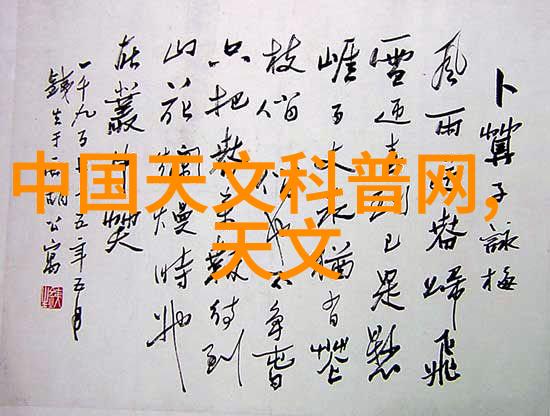 卜算子詠梅
風雨送春歸飛
雪迎春到已是懸
崖百丈冰猶有花
枝俏俏也不爭春
只把春來報待到
山花爛熳時她
在叢中笑
一千九百七十五年五月
于西湖公寓
中国天文科普网,
天文